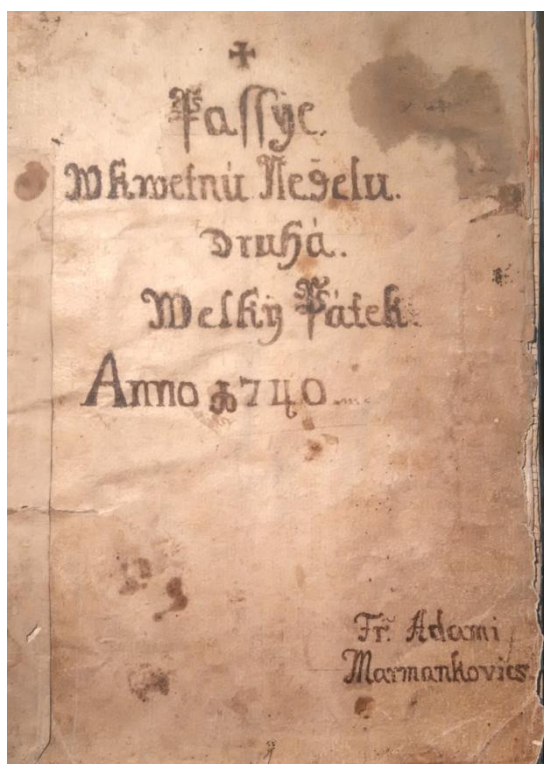 ✝
Passÿe.
W kwetnú Neďelu.
Druhá.
Welkÿ Pátek.
Anno 1740
Fr. Adami
Marmankovics